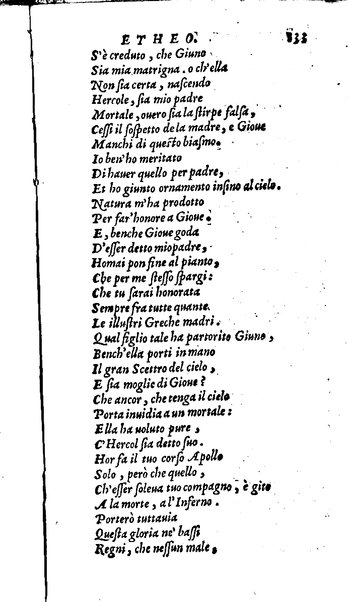 ETHEO. 833
S'è creduto, che Giuno
Sia mia matrigna. o ch'ella
Non sia certa, nascendo
Hercole, sia mio padre
Mortale, ouero sia la stirpe falsa,
Cessi il sospetto de la madre, e Gioue
Manchi di questo biasmo.
Io ben'ho meritato
Di hauer quello per padre,
Et ho giunto ornamento insino al cielo.
Natura m'ha prodotto
Per far'honore a Gioue.
E, benche Gioue goda
D'esser detto mio padre,
Homai pon fine al pianto,
Che per me stesso spargi:
Che tu sarai honorata
Sempre fra tutte quante
Le illustri Greche madri.
Qual figlio tale ha partorito Giuno,
Bench'ella porti in mano
Il gran Scettro del cielo,
E sia moglie di Gioue?
Che ancor, che tenga il cielo
Porta inuidia a un mortale:
Ella ha uoluto pure,
C'Hercol sia detto suo.
Hor fa il tuo corso Apollo
Solo, però che quello,
Ch'esser soleua tuo compagno, è gito
A la morte, a l'Inferno.
Porterò tuttauia
Questa gloria ne' bassi
Regni, che nessun male,